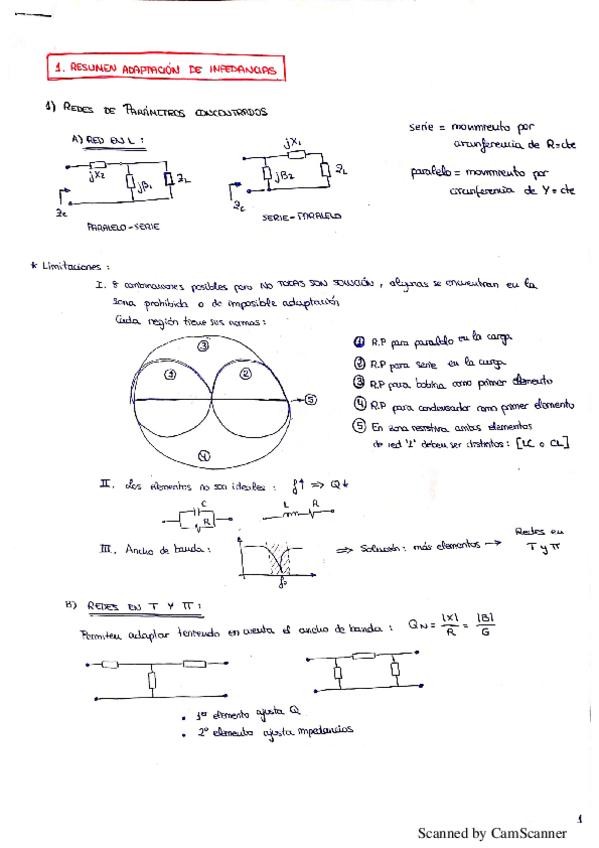 1. RESUMEN ADAPTACIÓN DE IMPEDANCIAS
1) REDES DE PARÁMETROS CONCENTRADOS
A) RED EN L :
jX2
jB1
ZL
Zc
PARALELO-SERIE
jX1
jB2
ZL
Zc
SERIE-PARALELO
serie = movimiento por
circunferencia de R=cte
paralelo = movimiento por
circunferencia de Y=cte
* Limitaciones :
I. 8 combinaciones posibles pero NO TODAS SON SOLUCIÓN, algunas se encuentran en la
zona prohibida o de imposible adaptación
Cada región tiene sus normas :
3
1
2
5
4
1 R.P para paralelo en la carga
2 R.P para serie en la carga
3 R.P para bobina como primer elemento
4 R.P para condensador como primer elemento
5 En zona resistiva ambos elementos
de red "L" deben ser distintos : [LC o CL]
II. Los elementos no son ideales : f↑ => Q↓
C
R
L R
III. Ancho de banda :
f0
=> Solución : más elementos → Redes en
T y π
B) REDES EN T Y π :
Permiten adaptar teniendo en cuenta el ancho de banda : QN = |X|/R = |B|/G
• 1er elemento ajusta Q
• 2º elemento ajusta impedancias
1
Scanned by CamScanner